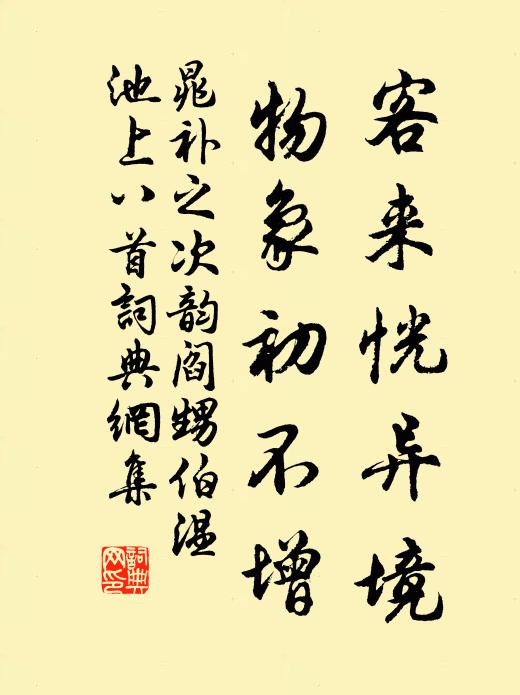 客来恍异境
物象初不增
晁补之次韵阎甥伯温
池上八首詞典網集
詞典
网印